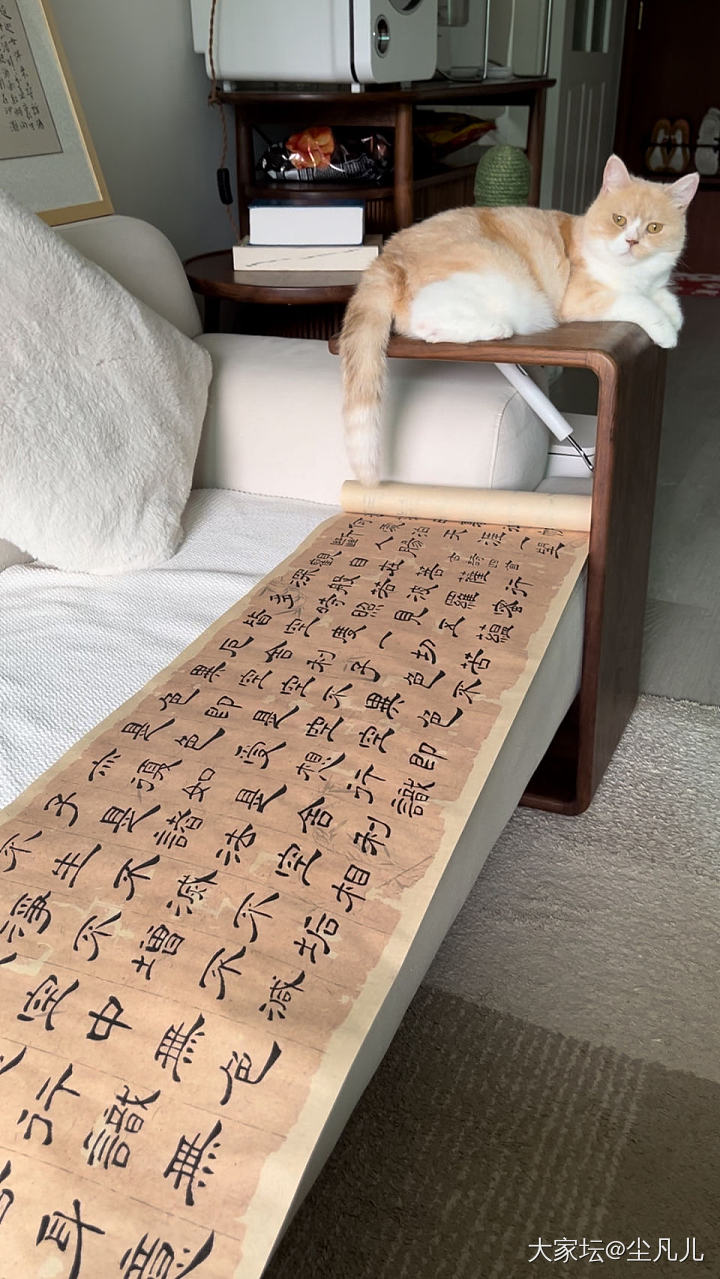 古詩四首
觀自在菩薩行
深般若波羅蜜
多時照見五蘊
皆空度一切苦
厄舍利子色不
異空空不異色
色即是空空即
是色受想行識
亦復如是舍利
子是諸法空相
不生不滅不垢
淨不增不減
空中無色
行識無
身意
大家坛@尘凡儿